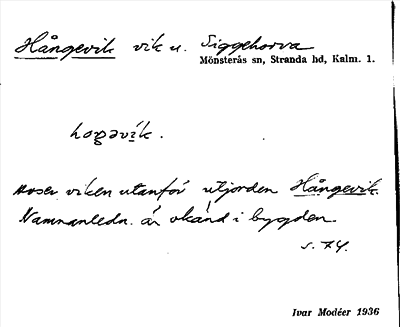 Hångevik vik u. Siggehorva
Mönsterås sn, Stranda hd, Kalm. l.
hoŋəvik.
avser viken utanför utjorden Hångevik.
Namnanledn. är okänd i bygden.
s. 74.
Ivar Modéer 1936